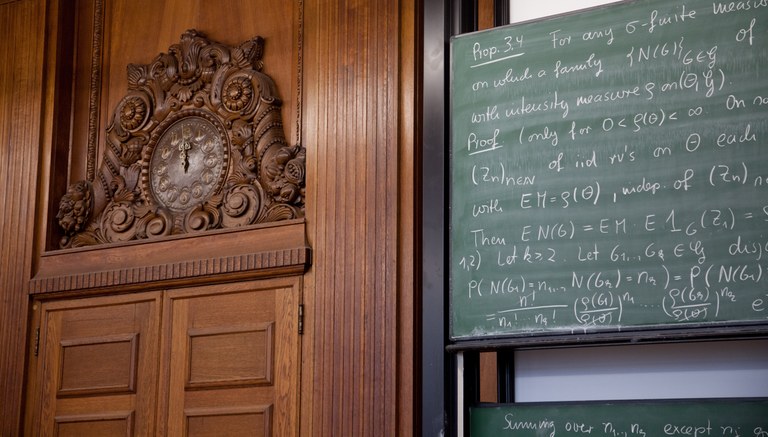 Prop. 3.4 For any σ-finite meas
on which a family {N(G)}_{G∈𝒢} of
with intensity measure ρ on (Θ, 𝒢)
Proof (only for 0 < ρ(Θ) < ∞. On
(Zn)n∈ℕ of iid rv's on Θ each
with EM = ρ(Θ), indep. of (Zn)
Then E N(G) = EM · E 1_G (Z1) =
1,2) Let k ≥ 2. Let G1, .. Gk ∈ 𝒢 disj
P( N(G1) = n1, .., N(Gk) = nk ) = P( N(G1)
= n! / n1! ... nk! (ρ(G1)/ρ(Θ))^n1 (ρ(Gk)/ρ(Θ))^nk e
Summing over n1, .., nk except ni